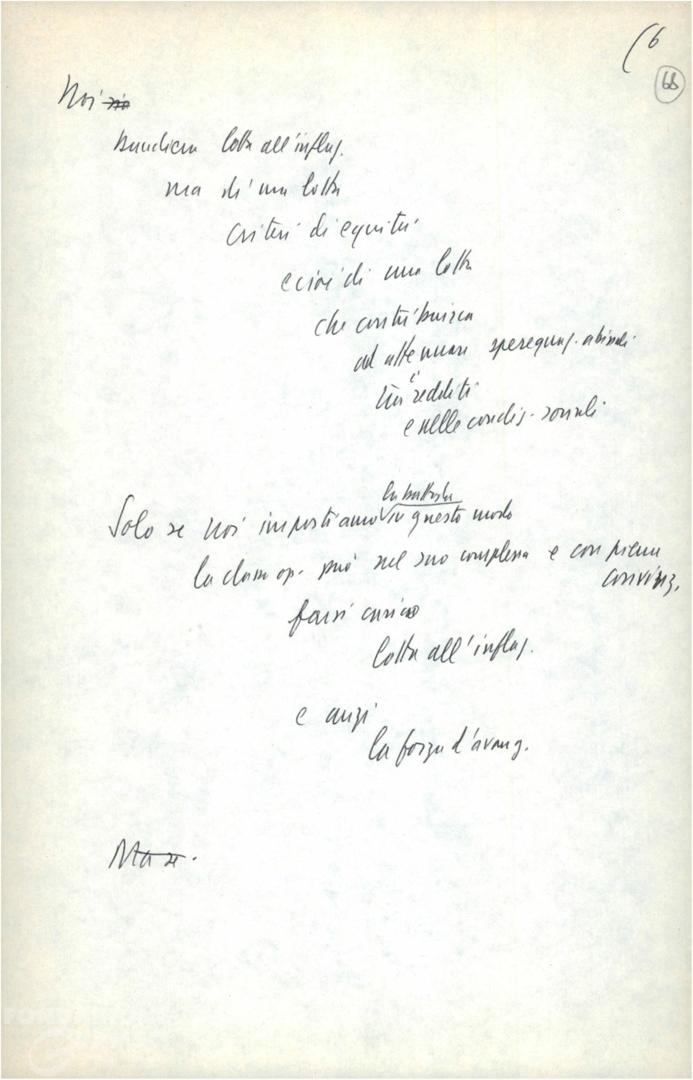 (6
66
Noi
lotta all'inflaz.
ma di una lotta
criteri di equità
e cioè di una lotta
che contribuisca
ad attenuare sperequaz. attuali
tra i redditi
e nelle condiz. sociali
la battaglia
Solo se noi impostiamo in questo modo
la classe op. può nel suo complesso e con piena
convinz.
farsi carico
lotta all'inflaz.
e anzi
la forza d'avang.
Ma se.